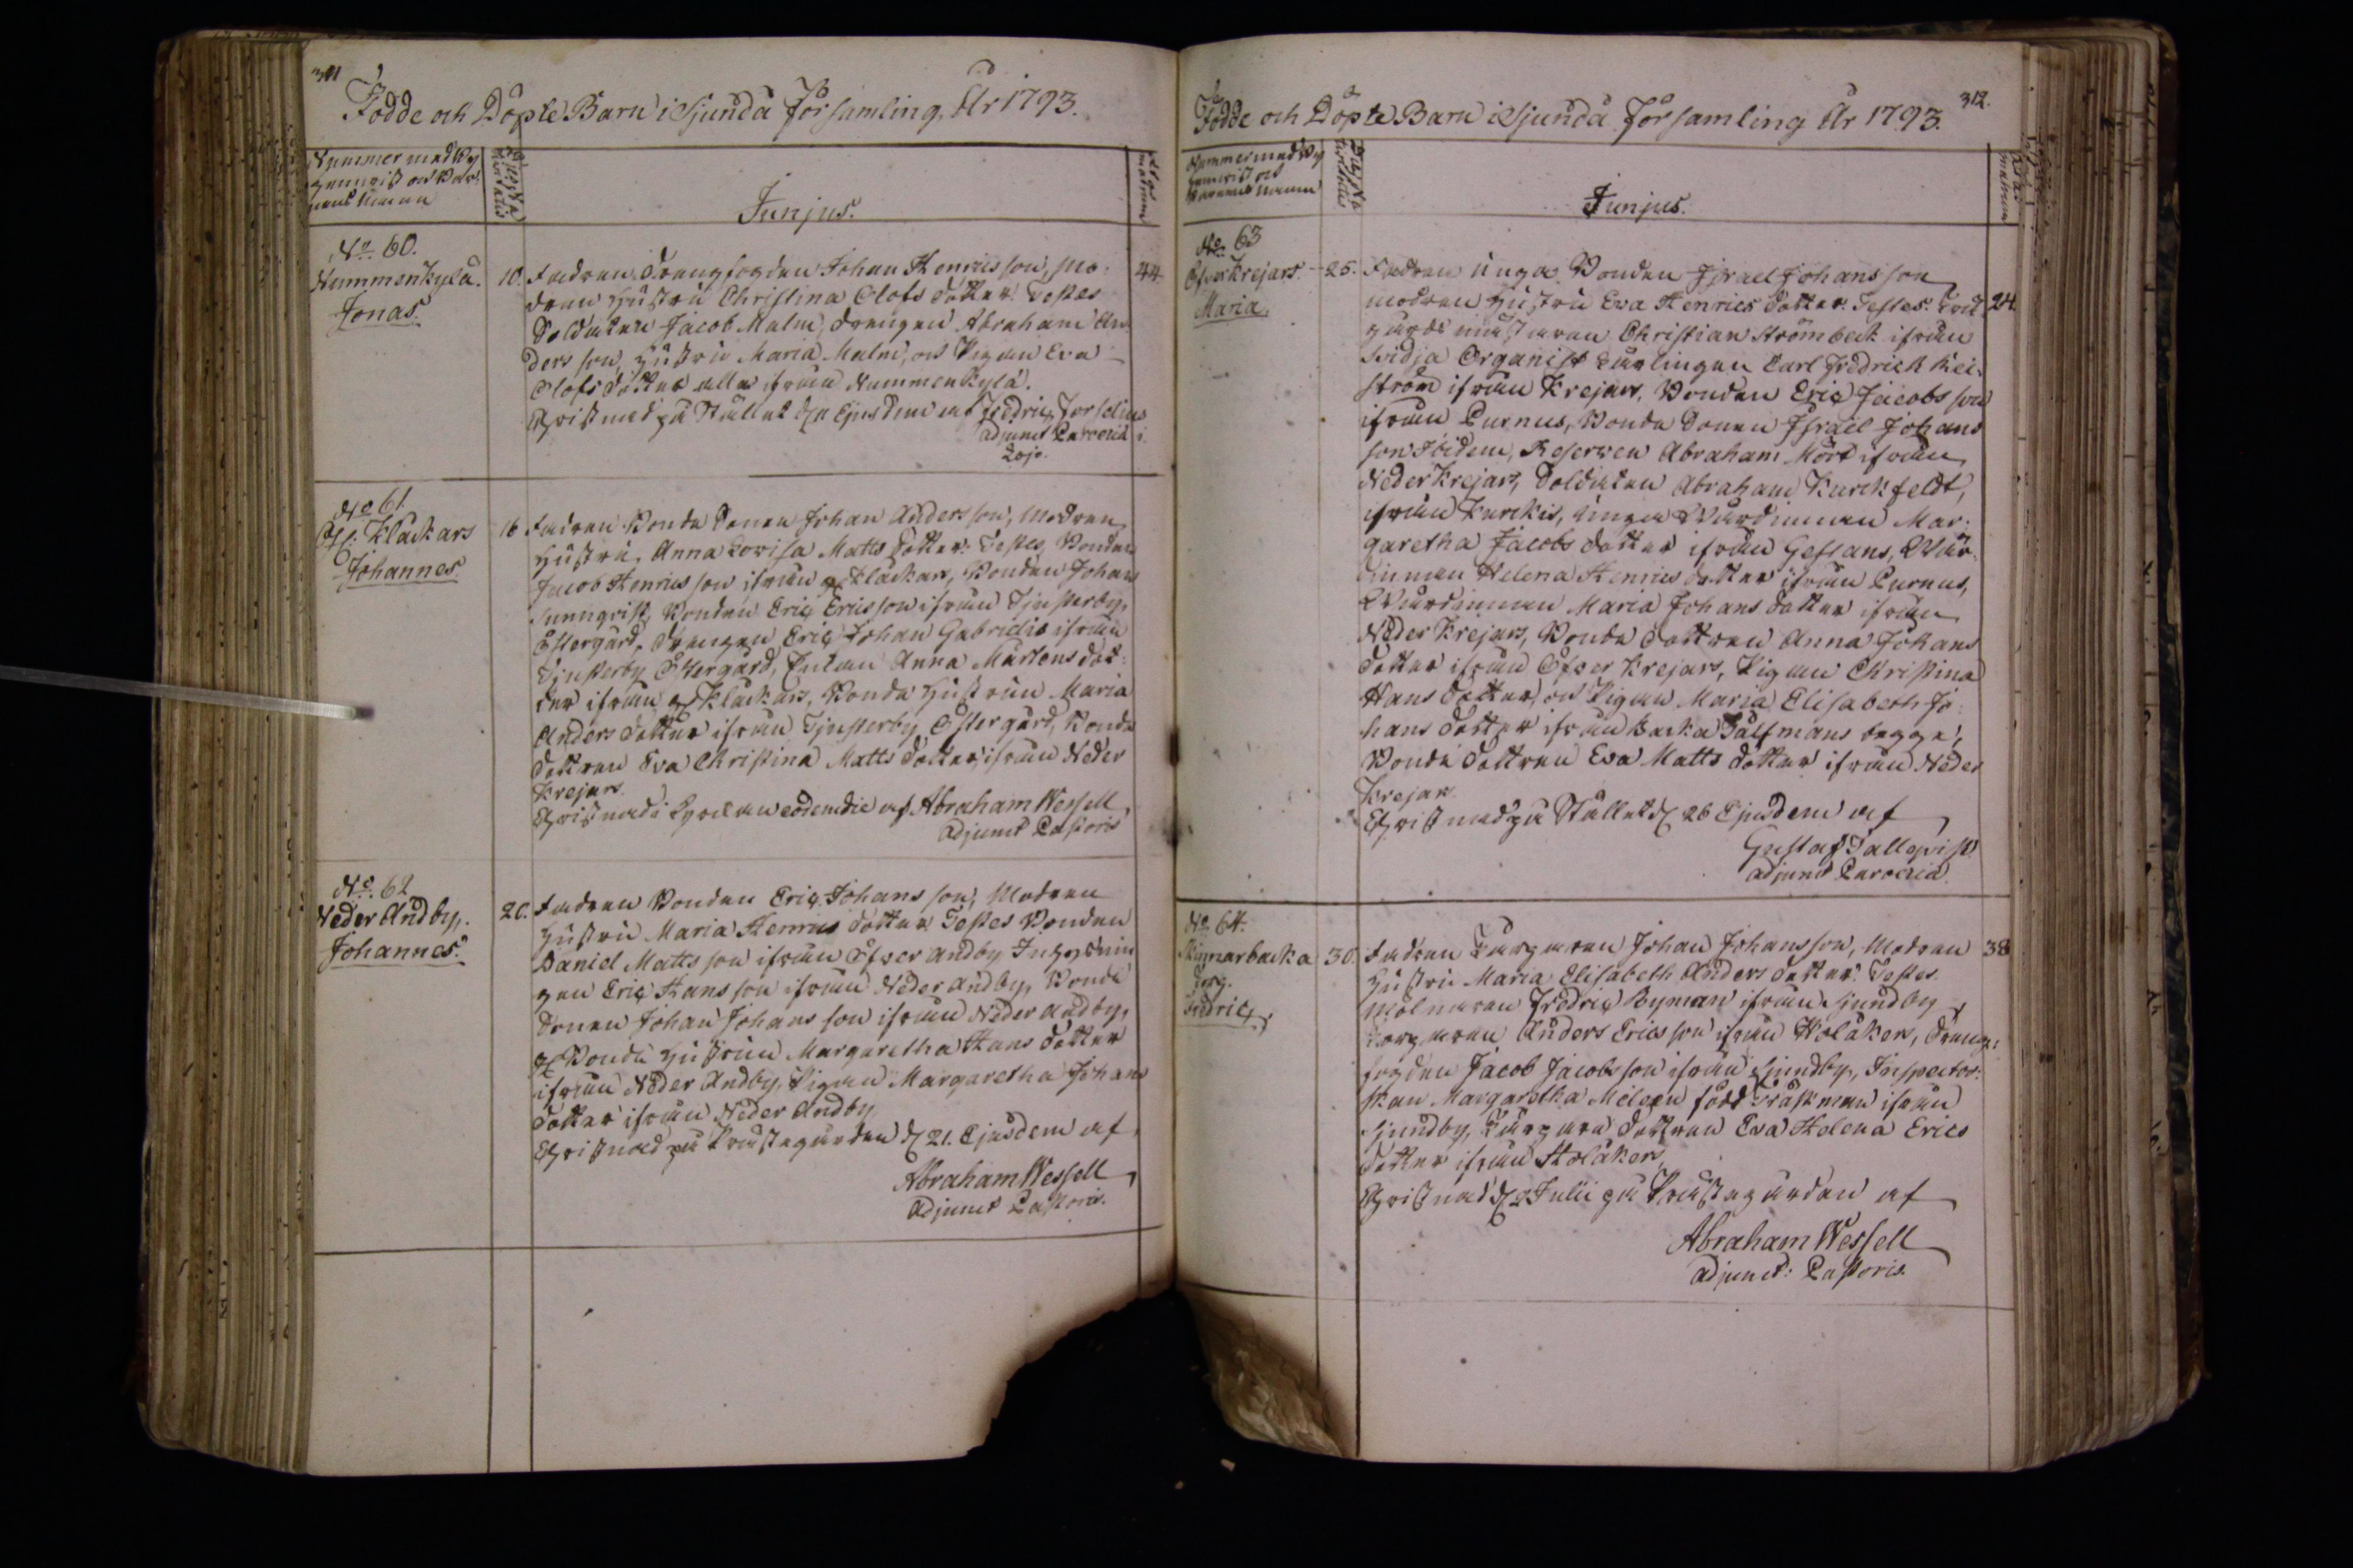 311
Födde och Döpte Barn i Sjundå Församling, År 1793.
Nummer med By
genn
nens Namn
Dies Na
tivitatis
Junjus.
Ætas
matrum
No. 60.
Nummenkylä.
Jonas.
10. Fadren Drengfogden Johan Henricsson, Mo-
dren Hustru Christina Olofs dotter. Testes
Soldaten Jacob Malm, drengen Abraham An-
ders son, Hustru Maria Malm, och Pigan Eva
Olofs dotter alla ifrån Nummenkylä.
Christnad på Stället d. Ejusdem af Fredric Forselius
adjunct Paroeciæ i
Lojo.
44
No 61.
Öf: Klackars
Johannes.
16 Fadren Bonde Sonen Johan Andersson, Modren
Hustru Anna Lovisa Matts dotter. Testes Bonden
Jacob Henricsson ifrån Klackars, Bonden Johan
Sunnqvist, Bonden Eric Ericsson ifrån Tjusterby,
Östergård, Drengen Eric Johan Gabrielis ifrån
Tjusterby Östergård, Enkan Anna Mårtens dot-
ter ifrån Klackars, Bonde Hustrun Maria
Anders dotter ifrån Tjusterby Östergård, Bonde
dottren Eva Christina Matts dotter, ifrån Neder
Krejars.
Christnad i Kyrckan eodem die af Abraham Wessell
adjunct Pastoris
No. 62
Neder Andby.
Johannes.
20. Fadren Bonden Eric Johans son, Modren
Hustru Maria Henrics dotter. Testes Bonden
Daniel Matts son ifrån Öfver Andby
gen Eric Hans son ifrån Neder Andby, Bonde
Sonen Johan Johans son ifrån Neder Andby,
Bonde Hustrun Margaretha Hans dotter
ifrån Neder Andby, Pigan Margaretha Johans
dotter ifrån Neder Andby
Christnad på Prästegården d. 21. Ejusdem af
Abraham Wessell
Adjunct Pastoris.
312.
Födde och Döpte Barn i Sjundå Församling År 1793.
Nummer med By
Barnens Namn
Dies Na
tivitatis
Junjus.
Ætas
matrum
No. 63
Öfver Krejars.
Maria.
25. Fadren Unga Bonden Israel Johansson
modren Hustru Eva Henrics dotter. Testes. Träd
24.
gårds mästaren Christian Strömbeck ifrån
Svidja Organist Lärlingen Carl Fredrick Kei-
ström ifrån Krejars, Bonden Eric Jacobs son
ifrån Purnus, Bonde Sonen Israel Johans
son Ibidem, Reserven Abraham Mört ifrån
Neder Krejars, Soldaten Abraham Kurckfeldt,
ifrån Kurckis, Unga Wärdinnan Mar-
garetha Jacobs dotter ifrån Gesans, Wär-
dinnan Helena Henrics dotter ifrån Purnus,
Wärdinnan Maria Johans dotter ifrån
Neder Krejars, Bonde dottren Anna Johans
dotter ifrån Öfver Krejars, Pigan Christina
Hans dotter, och Pigan Maria Elisabeth Jo-
hans dotter ifrån Backa Tålfmans begge,
Bonde dottren Eva Matts dotter ifrån Neder
Krejars
Christnad på Stället d. 26 Ejusdem af
Gustaf Tallqvist
adjunct Paroeciæ.
No 64.
Skinnarbacka
Torg.
Fredric.
30. Fadren Torparen Johan Johansson, Modren
38
Hustru Maria Elisabeth Anders dotter. Testes.
Mölnaren Fredric Byman ifrån Sjundby
Torparen Anders Ericsson ifrån Stolåkers, Dreng-
fogden Jacob Jacobsson ifrån Sjundby, Inspector-
skan Margaretha Meleen född Träskman ifrån
Sjundby, Torpare dottren Eva Helena Erics
dotter ifrån Stolåkers,
Christnad d. 2 Julii på Prästegården af
Abraham Wessell
adjunct: Pastoris.